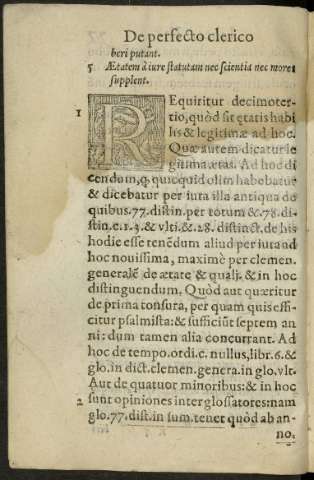 De perfecto clerico
beri putant.
5 Ætatem à iure statutam nec scientia nec mores
supplent.
1 REquiritur decimoter-
tio, quòd sit ętatis habi
lis & legitimæ ad hoc.
Quæ autem dicatur le
gitima ætas. Ad hoc di
cendum, ꝙ quicquid olim habebatur
& dicebatur per iura illa antiqua de
quibus. 77. distin. per totum & .78. di-
stin. c. 1. 3. & vlti. & .28. distinct. de his
hodie esse tenẽdum aliud per iura ad
hoc nouissima, maximè per clemen.
generalẽ de ætate & quali. & in hoc
distinguendum. Quòd aut quæritur
de prima tonsura, per quam quis effi-
citur psalmista: & sufficiũt septem an
ni: dum tamen alia concurrant. Ad
hoc de tempo. ordi. c. nullus, lib. 6. &
glo. in dict. clemen. genera. in glo. vlt.
Aut de quatuor minoribus: & in hoc
2 sunt opiniones inter glossatores: nam
glo. 77. dist. in sum. tenet quòd ab an-
no.